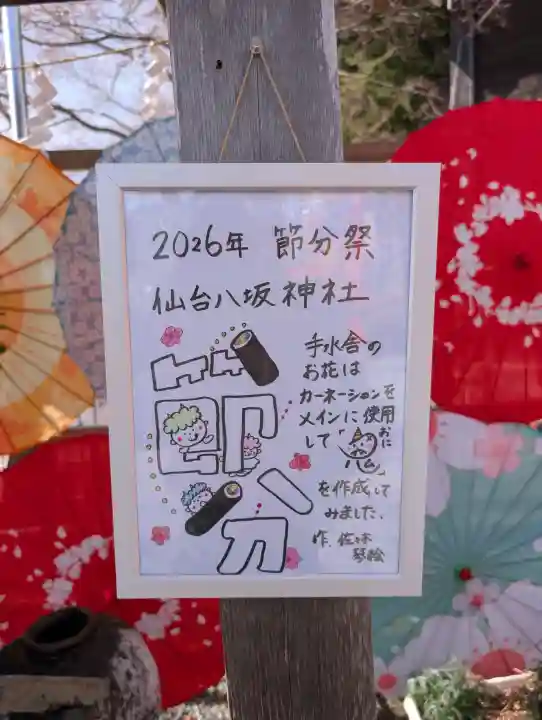 2026年 節分祭
仙台八坂神社
節分
手水舎の
お花は
カーネーションを
メインに使用
して「おに
ハム」
を作成して
みました。
作.佐々木
琴絵